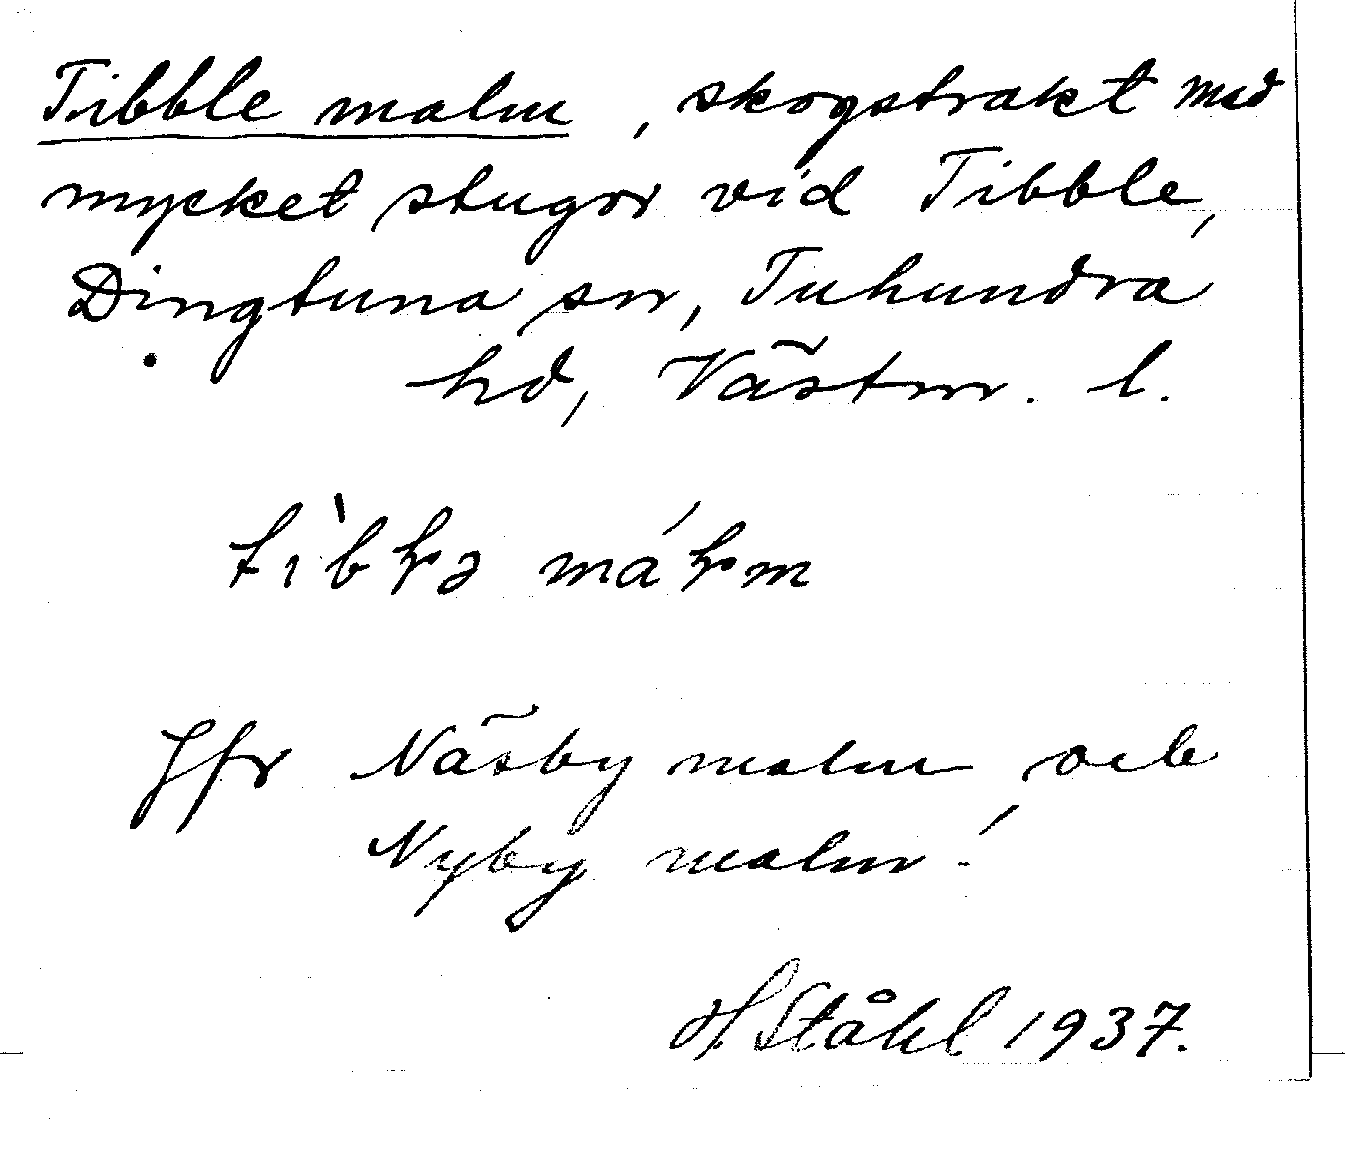 Tibble malm, skogstrakt med
mycket stugor vid Tibble,
Dingtuna sn, Tuhundra
hd, Västm. l.
tìbɽə máɽm
Jfr Näsby malm och
Nyby malm!
H. Ståhl 1937.